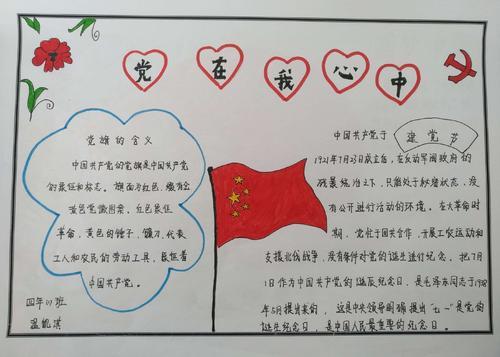 党在我心中
党旗的含义
中国共产党的党旗是中国共产党
的象征和标志。旗面为红色,缀有金
黄色党徽图案。红色象征
革命,黄色的锤子、镰刀,代表
工人和农民的劳动工具,象征着
中国共产党。
四年(1)班
建党节
中国共产党于
1921年7月23日成立后,在反动军阀政府的
残暴统治之下,只能处于秘密状态,没
有公开进行活动的环境。在大革命时
期,党忙于国共合作,开展工农运动和
支援北伐战争,没有条件对党的诞生进行纪念。把7月
1日作为中国共产党的诞辰纪念日,是毛泽东同志于1938
年5月提出来的,这是中央领导明确提出“七一”是党的
诞生纪念日,是中国人民最重要的纪念日。